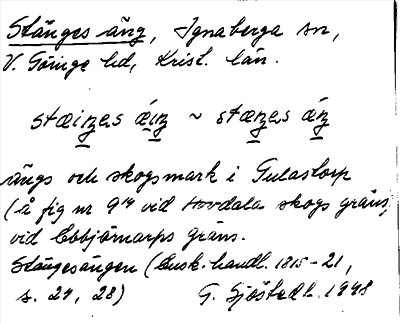 Stänges äng, Ignaberga sn,
V. Göinge hd, Krist. län.
stæinzes áuz ~ stæzes áz
ängs och skogsmark i Gulastorp
(å fig nr 9 14 vid Hovdala skogs gräns,
vid Ebbjörnarps gräns.
Stängesängen (Ensk. handl. 1815-21,
s. 24, 28) G. Sjöstedt. 1948